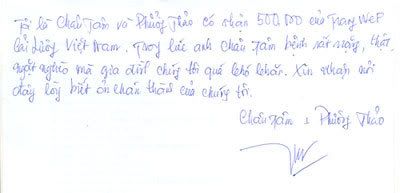 Tôi là Châu Tâm và Phượng Thảo có nhận 500 DO của Trang WeB
Cải Lương Việt Nam. Trong lúc anh Châu Tâm bệnh rất nặng, thật
ngặt nghèo mà gia đình chúng tôi quá khó khăn. Xin nhận nơi
đây lòng biết ơn chân thành của chúng tôi.
Châu Tâm & Phượng Thảo